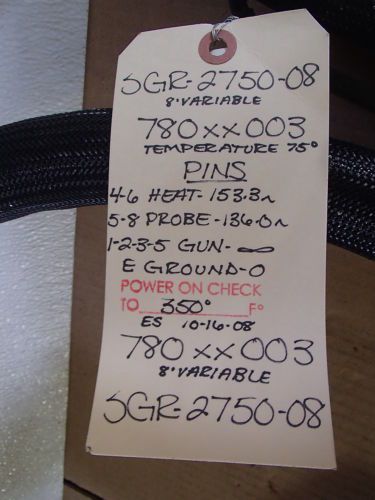 SGR-2750-08
8' VARIABLE
780xx003
TEMPERATURE 75°
PINS
4-6 HEAT- 153.3Ω
5-8 PROBE- 136.0Ω
1-2-3-5 GUN- ∞
E GROUND-0
POWER ON CHECK
TO 350° F°
ES 10-16-08
780xx003
8' VARIABLE
SGR-2750-08